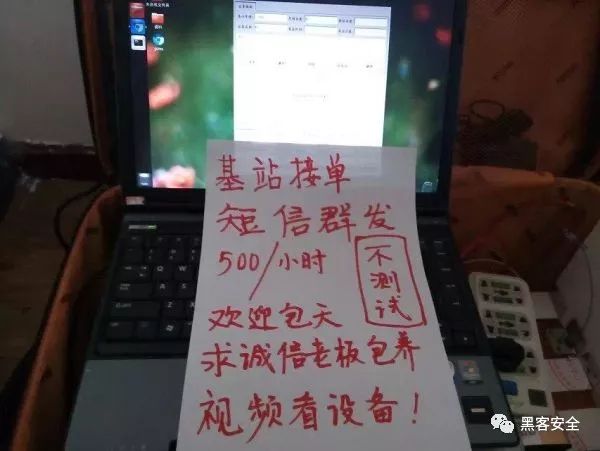 基站接单
短信群发
500/小时
不测试
欢迎包天
求诚信老板包养
视频看设备！
黑客安全